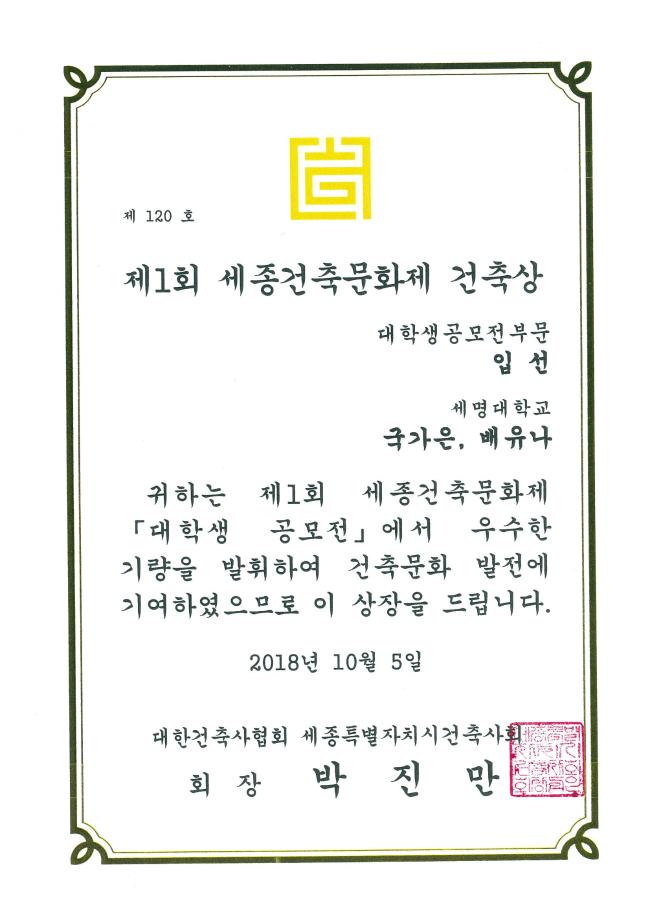 제 120 호
제1회 세종건축문화제 건축상
대학생공모전부문
입 선
세명대학교
국가은, 배유나
귀하는 제1회 세종건축문화제
「대학생 공모전」에서 우수한
기량을 발휘하여 건축문화 발전에
기여하였으므로 이 상장을 드립니다.
2018년 10월 5일
대한건축사협회 세종특별자치시건축사회
회 장 박 진 만